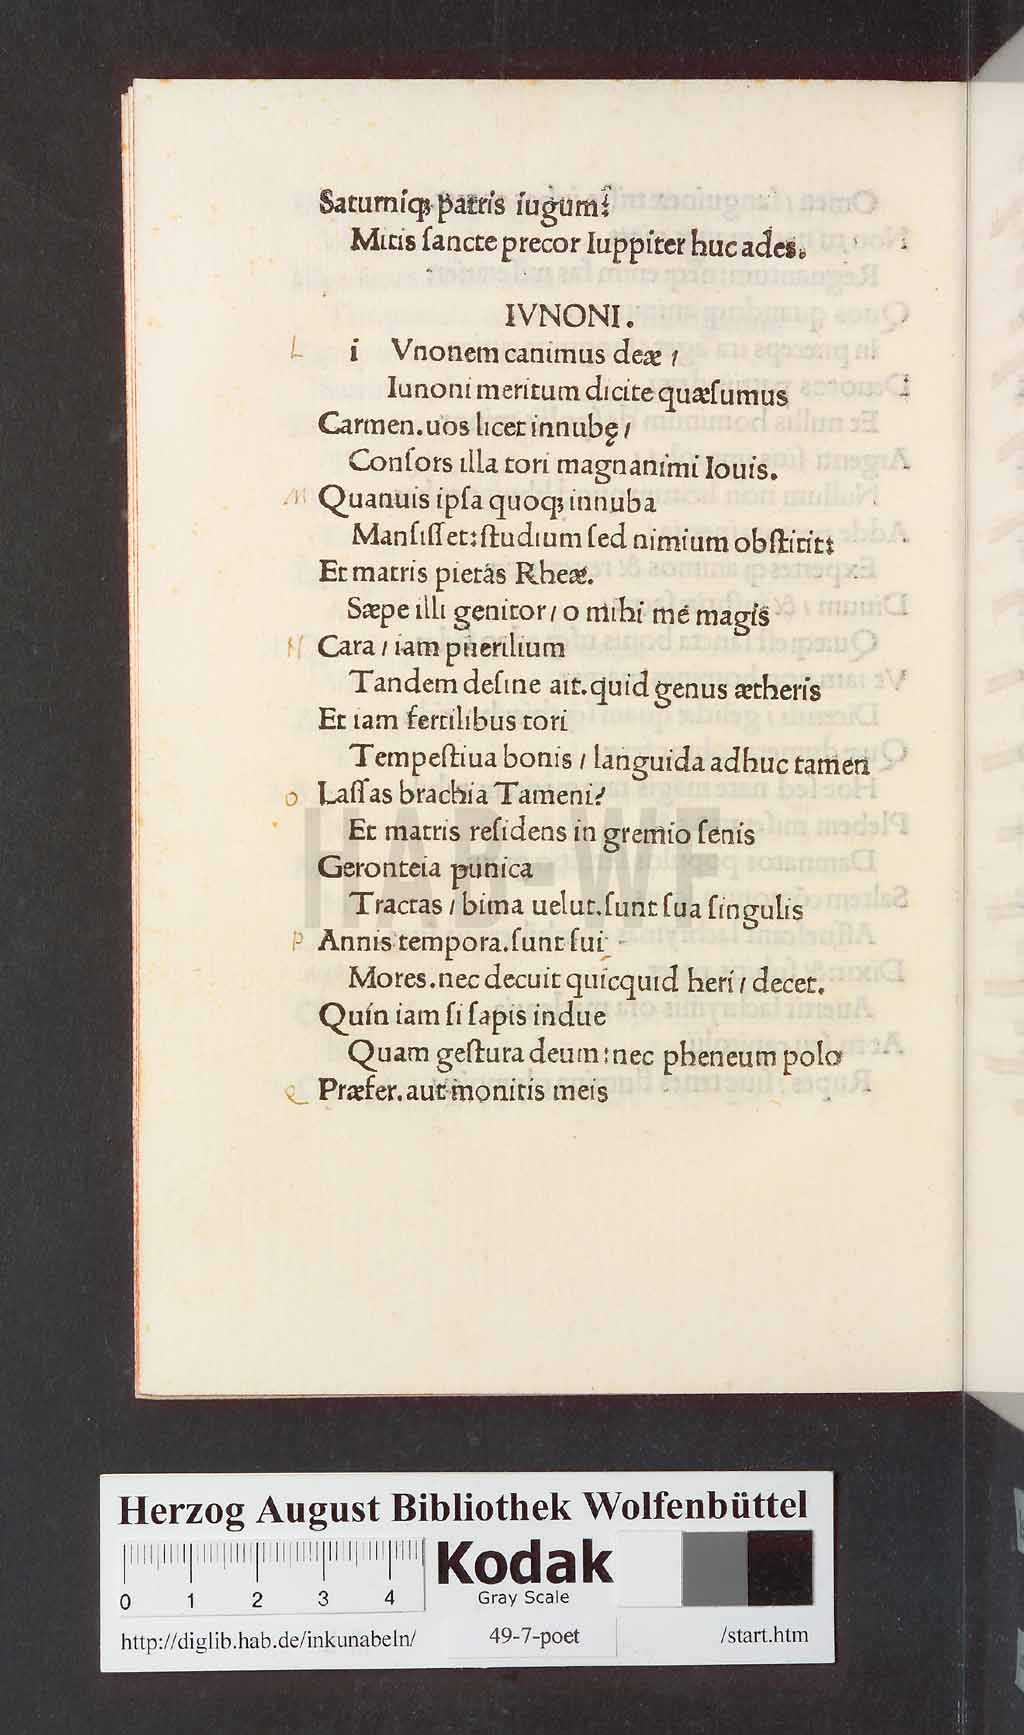 Saturniqꝫ patris iugum?
Mitis ſancte precor Iuppiter huc ades.
IVNONI.
L i Vnonem canimus deæ /
Iunoni meritum dicite quæſumus
Carmen. uos licet innubę /
Conſors illa tori magnanimi Iouis.
M Quanuis ipſa quoqꝫ innuba
Manſiſſet: ſtudium ſed nimium obſtitit:
Et matris pietas Rheæ.
Sæpe illi genitor / o mihi me magis
N Cara / iam puerilium
Tandem deſine ait. quid genus ætheris
Et iam fertilibus tori
Tempeſtiua bonis / languida adhuc tamen
O Laſſas brachia Tameni?
Et matris reſidens in gremio ſenis
Geronteia punica
Tractas / bima uelut. ſunt ſua ſingulis
P Annis tempora. ſunt ſui
Mores. nec decuit quicquid heri / decet.
Quín iam ſi ſapis indue
Quam geſtura deum: nec pheneum polo
Q Præfer. aut monitis meis
HAB-WF
Herzog August Bibliothek Wolfenbüttel
0 1 2 3 4
Kodak
Gray Scale
http://diglib.hab.de/inkunabeln/ 49-7-poet /start.htm